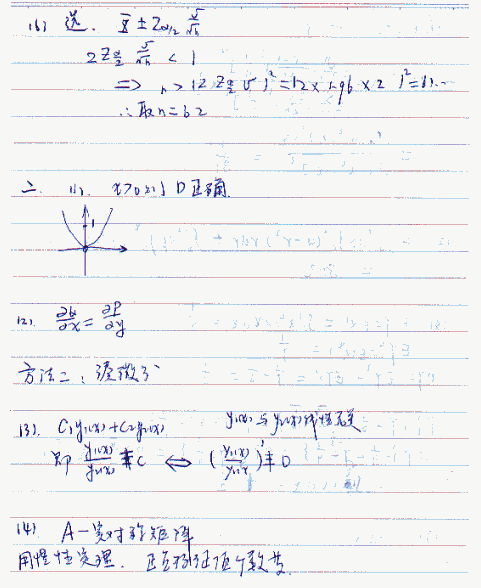 (6) 选. X̄ ± Z_{α/2} σ/√n
2Z_{α/2} σ/√n < 1
⇒ n > (2 Z_{α/2} σ)² = (2×1.96×2)² = 61.…
∴ 取 n = 62
二. (1). D正确.
1
(2). ∂Q/∂x = ∂P/∂y
方法二:凑微分
(3). C₁y₁(x)+C₂y₂(x) y₁(x) 与 y₂(x) 线性无关
即 y₁(x)/y₂(x) ≢ C ⇔ (y₁(x)/y₂(x))' ≢ 0
(4) A-实对称矩阵
用惯性定理. 正